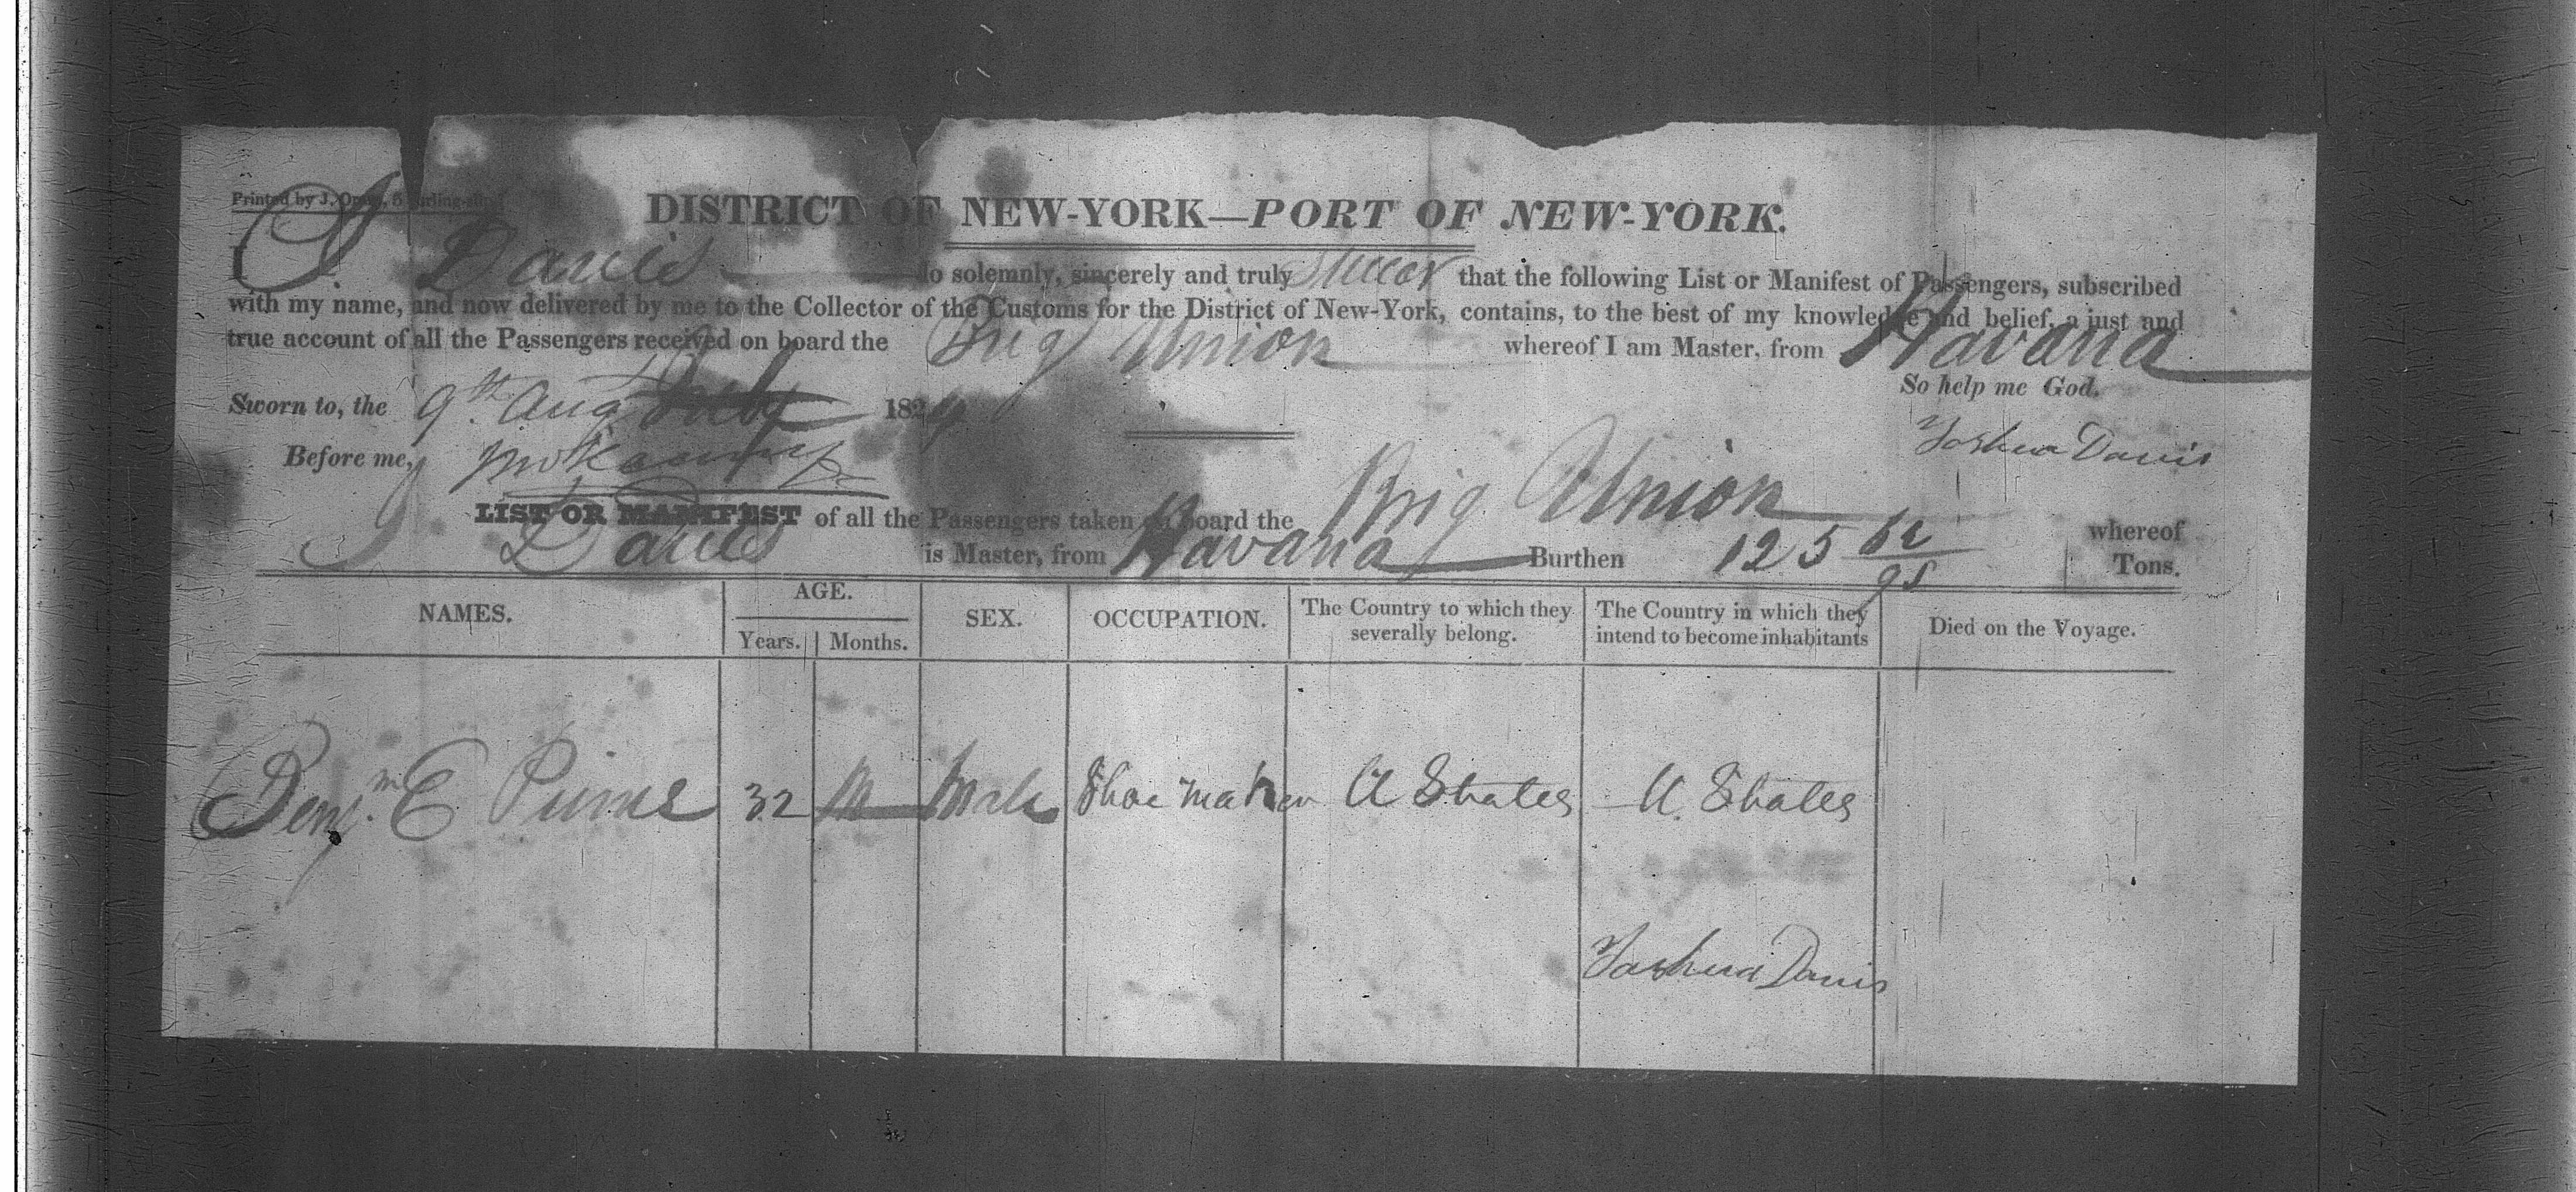 Printed by J. Oram, 5 Burling-slip
DISTRICT OF NEW-YORK—PORT OF NEW-YORK.
I, J. Davis do solemnly, sincerely and truly Swear that the following List or Manifest of Passengers, subscribed
with my name, and now delivered by me to the Collector of the Customs for the District of New-York, contains, to the best of my knowledge and belief, a just and
true account of all the Passengers received on board the Brig Union whereof I am Master, from Havana
So help me God.
Sworn to, the 9th Aug July 1824
Joshua Davis
Before me,
LIST OR MANIFEST of all the Passengers taken on board the Brig Union whereof
J Davis is Master, from Havana Burthen 125 62/95 Tons.
NAMES. AGE. Years. Months. SEX. OCCUPATION. The Country to which they severally belong. The Country in which they intend to become inhabitants Died on the Voyage.
Benjm. E 32 M Male Shoe maker U States U. States
Joshua Davis